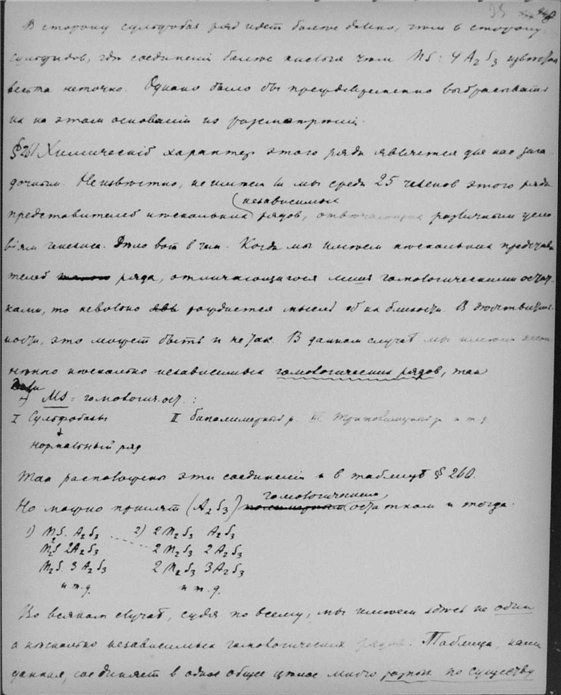 В сторону сульфобаз ряд идет более давно, чем в сторону
сульфидов, где соединений более кислых чем MS : 4 A₂S₃
неточно. Однако было бы преждевременно выбрасывать
их на этом основании из рассмотрений.
§ 261 Химический характер этого ряда является для нас зага-
дочным. Неизвестно, не имеем ли мы среди 25 членов этого ряда
независимых
представителей нескольких рядов, отвечающих различным усло
виям генезиса. Дело вот в чем. Когда мы имеем нескольких представи
телей ряда, отличающихся лишь гомологическими остат
ками, то невольно рождается мысль об их близости. В действитель
ности, это может быть и не так. В данном случае мы имеем
несколько независимых гомологических рядов, так
1) MS = гомологич. ост. :
I Сульфобазы II Биполимерный р. III и т. д
нормальный ряд
Так расположены эти соединения и в таблице § 260.
гомологическими
Но можно принять (A₂S₃) остатком и тогда.
1) MS. A₂S₃ 2) 2 M₂S A₂S₃
M₂S 2A₂S₃ 2 M₂S 2 A₂S₃
M₂S. 3 A₂S₃ 2 M₂S 3 A₂S₃
и т. д. и т. д.
Во всяком случае, судя по всему, мы имеем здесь не один
а несколько независимых гомологических рядов. Таблица, нами
данная, соединяет в одно общее целое много разных по существу